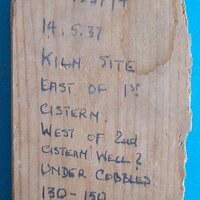 14.5.37
KILN SITE
EAST OF 1st
CISTERN.
WEST OF 2nd
CISTERN WELL?
UNDER COBBLES
130-150